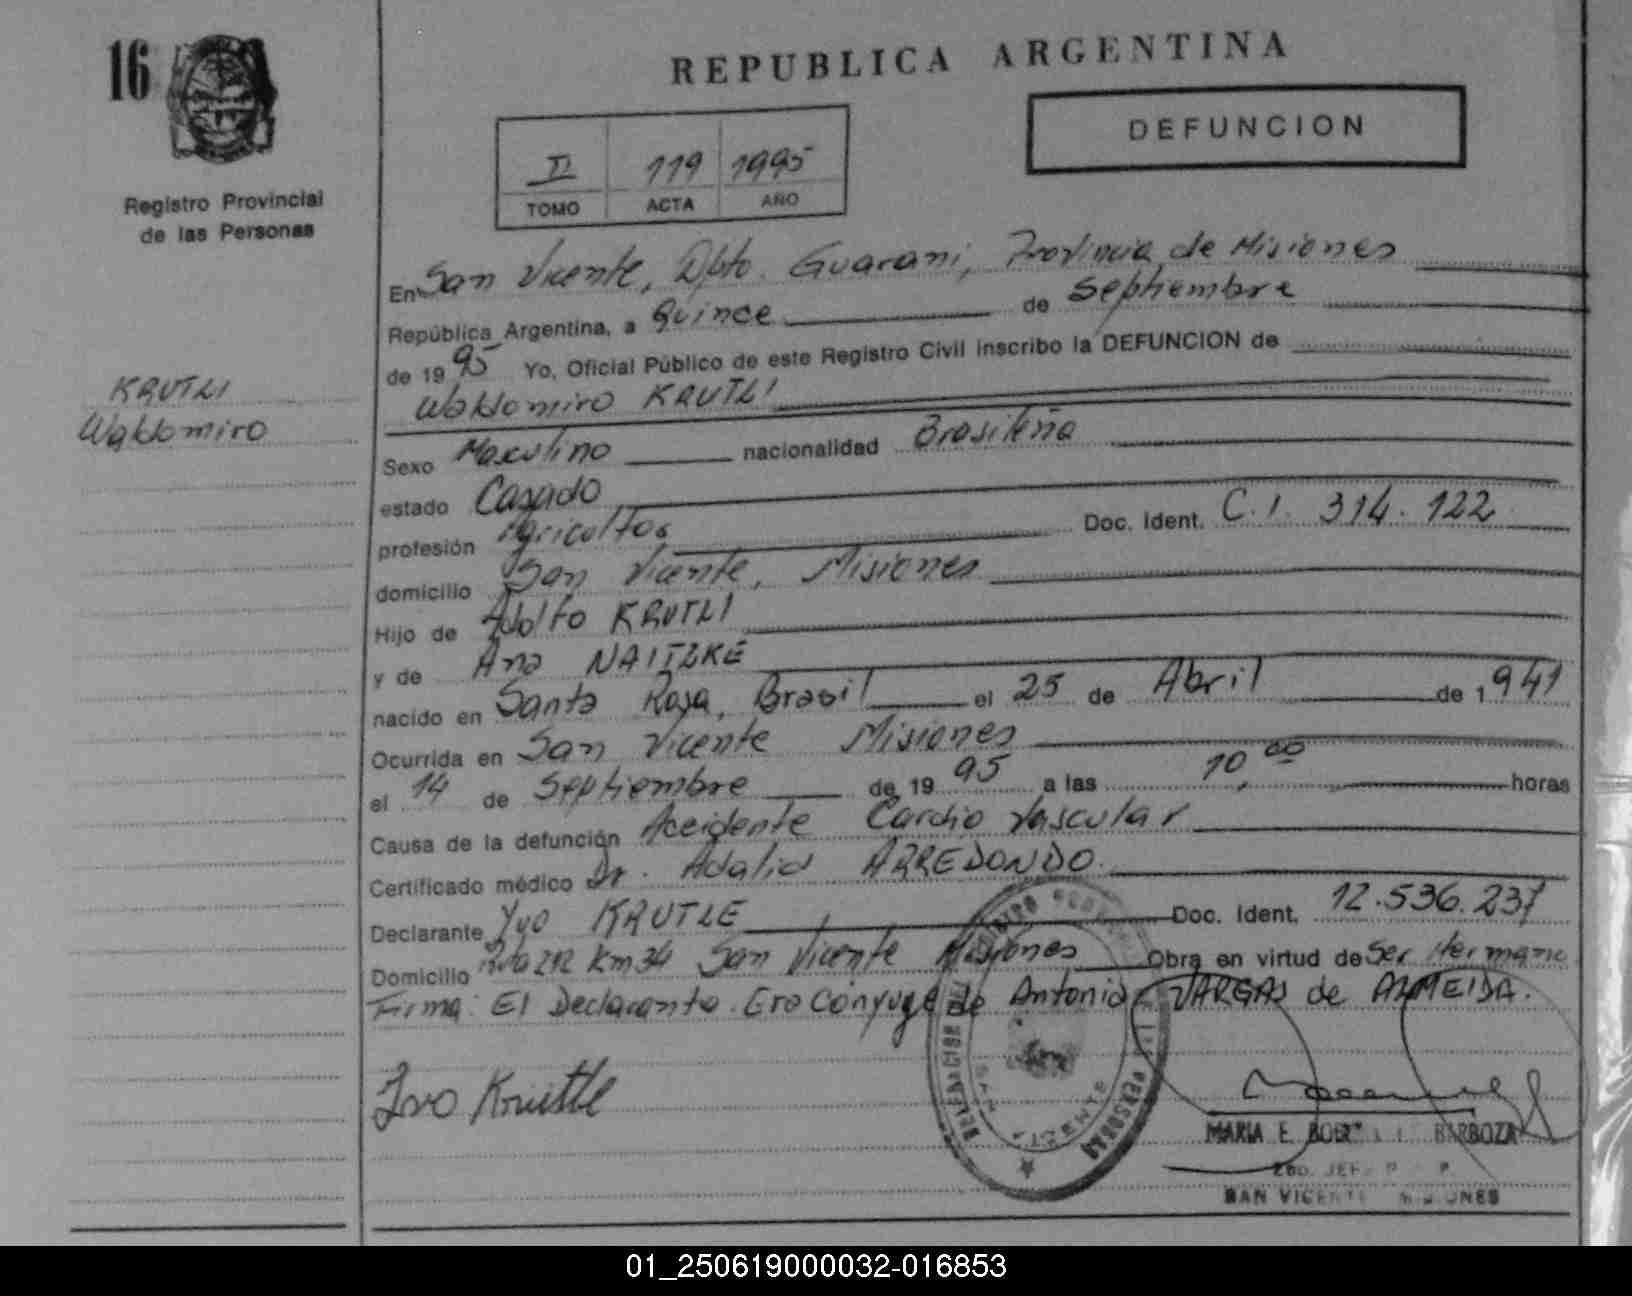 16
REPUBLICA ARGENTINA
DEFUNCION
II 119 1995
TOMO ACTA AÑO
Registro Provincial
de las Personas
KRUTLI
Waldomiro
En San Vicente, Dpto. Guarani, Provincia de Misiones
República Argentina, a Quince de Septiembre
de 1995 Yo, Oficial Público de este Registro Civil inscribo la DEFUNCION de
Waldomiro KRUTLI
Sexo Masculino nacionalidad Brasileña
estado Casado
profesión Agricultor Doc. Ident. C.I. 314.122
domicilio San Vicente, Misiones
Hijo de Adolfo KRUTLI
y de Ana NAITZKE
nacido en Santa Rosa, Brasil el 25 de Abril de 1941
Ocurrida en San Vicente Misiones
el 14 de Septiembre de 1995 a las 10,00 horas
Causa de la defunción Accidente Cardio Vascular
Certificado médico Dr. Adalid ARREDONDO.
Declarante Yvo KRUTLE Doc. Ident. 12.536.237
Domicilio Ruta 212 Km 34 San Vicente Misiones Obra en virtud de Ser Hermano
Firma: El Declarante. Era Cónyuge de Antonia VARGAS de ALMEIDA.
Ivo Krutle
SAN VICENTE
PERSONAS
MARIA E. BARBOZA
SAN VICENTE MISIONES
01_250619000032-016853